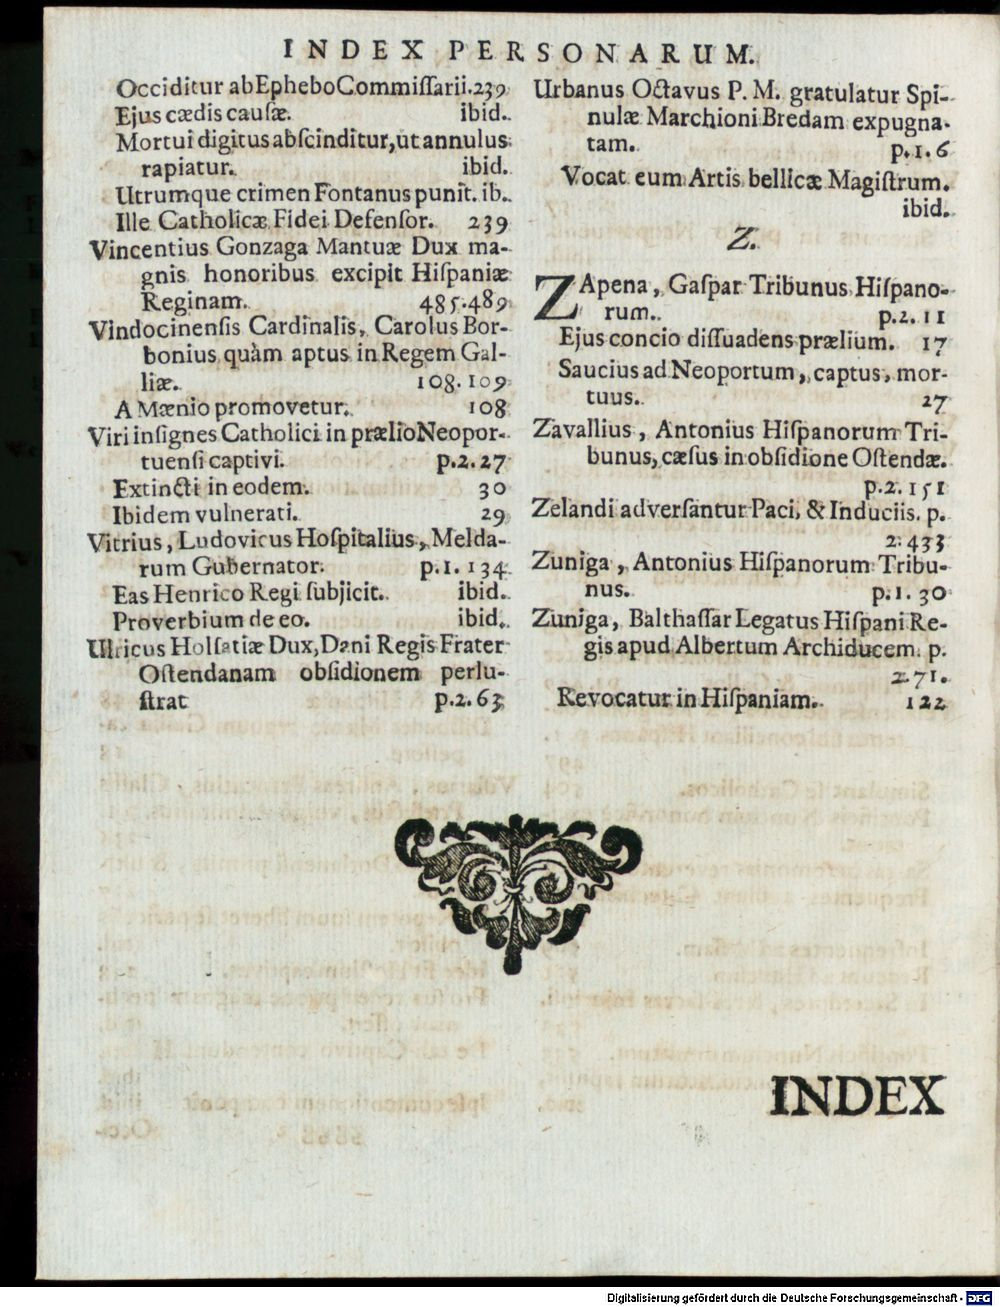 INDEX PERSONARUM.
Occiditur ab Ephebo Commiſſarii. 239
Ejus cædis cauſæ. ibid.
Mortui digitus abſcinditur, ut annulus
rapiatur. ibid.
Utrumque crimen Fontanus punit. ib.
Ille Catholicæ Fidei Defenſor. 239
Vincentius Gonzaga Mantuæ Dux ma-
gnis honoribus excipit Hiſpaniæ
Reginam. 485.489
Vindocinenſis Cardinalis, Carolus Bor-
bonius quàm aptus in Regem Gal-
liæ. 108.109
A Mænio promovetur. 108
Viri inſignes Catholici in prælio Neopor-
tuenſi captivi. p.2.27
Extincti in eodem. 30
Ibidem vulnerati. 29
Vitrius, Ludovicus Hoſpitalius, Melda-
rum Gubernator. p.1.134
Eas Henrico Regi ſubjicit. ibid.
Proverbium de eo. ibid.
Ulricus Holſatiæ Dux, Dani Regis Frater
Oſtendanam obſidionem perlu-
ſtrat p.2.63
Urbanus Octavus P. M. gratulatur Spi-
nulæ Marchioni Bredam expugna-
tam. p.1.6
Vocat eum Artis bellicæ Magiſtrum.
ibid.
Z.
ZApena, Gaſpar Tribunus Hiſpano-
rum. p.2.11
Ejus concio diſſuadens prælium. 17
Saucius ad Neoportum, captus, mor-
tuus. 27
Zavallius, Antonius Hiſpanorum Tri-
bunus, cæſus in obſidione Oſtendæ.
p.2.151
Zelandi adverſantur Paci, & Induciis. p.
2.433
Zuniga, Antonius Hiſpanorum Tribu-
nus. p.1.30
Zuniga, Balthaſſar Legatus Hiſpani Re-
gis apud Albertum Archiducem. p.
2.71.
Revocatur in Hiſpaniam. 122
INDEX
Digitalisierung gefördert durch die Deutsche Forschungsgemeinschaft - DFG